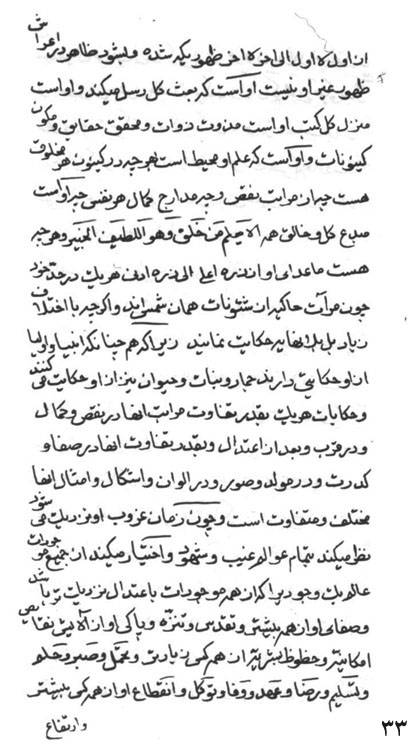 ان اول لا اول الی اخر لا اخر ظهور یکه شده و بشود ظاهر در اعراش
ظهور غیر او نیست او است که بعث کل رسل میکند و او است
منزل کل کتب او است مذوت ذوات و محقق حقایق و مکون
کینونات و او است که علم او محیط است بهر چه در کینونت هر مخلوق
هست چه از مراتب نقص و چه مدارج کمال هر نفسی چه او است
مبدع کل و خالق همه الا یعلم من خلق و هو اللطیف الخبیر و هر چه
هست ماعدای او از ذره اعلی الی ذره ادنی هر یک در حد خود
چون مرآت حاکی از شئونات همان شمس اند و اگر چه باختلاف
زیاد بل بلا نهایه حکایت نمایند زیرا که هم چنانکه انبیا و اولیا
از او حکایتی دارند جماد و نبات و حیوان نیز از او حکایت می کنند
و حکایات هر یک بقدر تفاوت مراتب انها در نقص و کمال
و در قرب و بعد از اعتدال و بقدر تفاوت انها در صفا و
کدرت و در مواد و صور و در الوان و اشکال و امثال انها
مختلف و متفاوت است و چون زمان غروب او نزدیک می شود
نظر میکند بتمام عوالم غیب و شهود و اختیار میکند از جمیع موجودات
عالم یک وجودیرا که از همه موجودات باعتدال نزدیک تر باشد
و صفای او از همه بیشتر و تقدیس و تنزه و پاکی او از آلایش نقایص
امکانیه و حظوظ بشریه از همه کس زیادتر و تحمل و صبر و حلم
و تسلیم و رضا و عهد و وفا و توکل و انقطاع او از همه کس بیشتر
و ارتفاع
۳۳